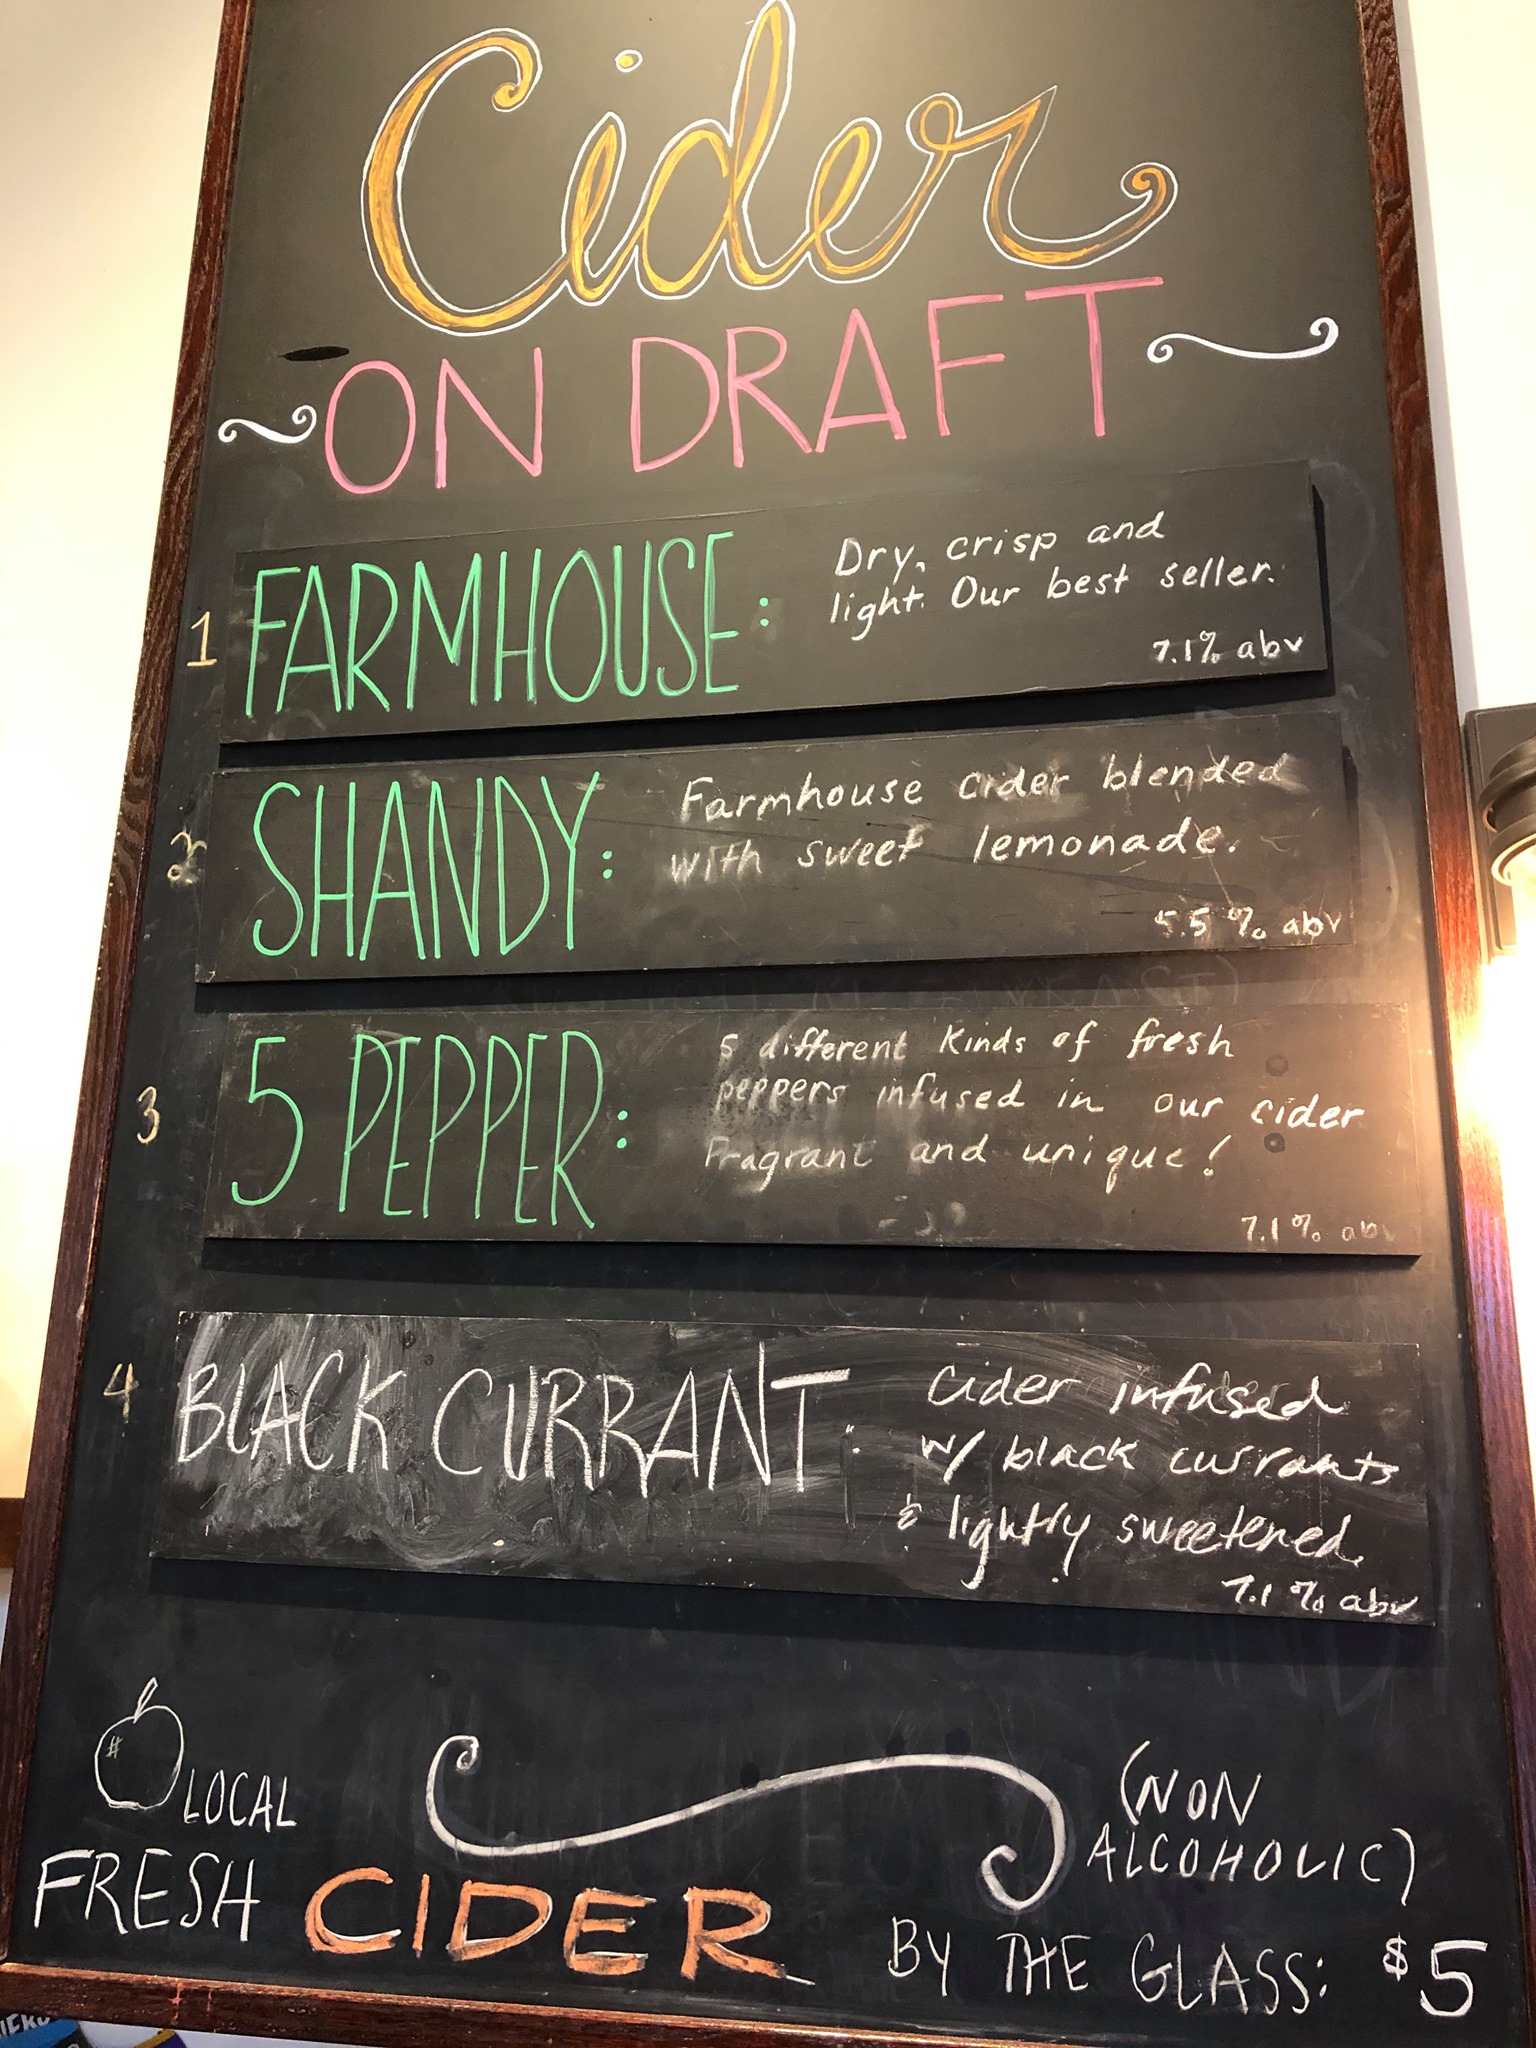 Cider
ON DRAFT
1 FARMHOUSE: Dry, crisp and
light. Our best seller.
7.1% abv
2 SHANDY: Farmhouse cider blended
with sweet lemonade.
5.5% abv
3 5 PEPPER: 5 different kinds of fresh
peppers infused in our cider
Fragrant and unique!
7.1% abv
4 BLACK CURRANT: Cider infused
w/ black currants
& lightly sweetened.
7.1% abv
LOCAL
FRESH CIDER
(NON
ALCOHOLIC)
BY THE GLASS: $5